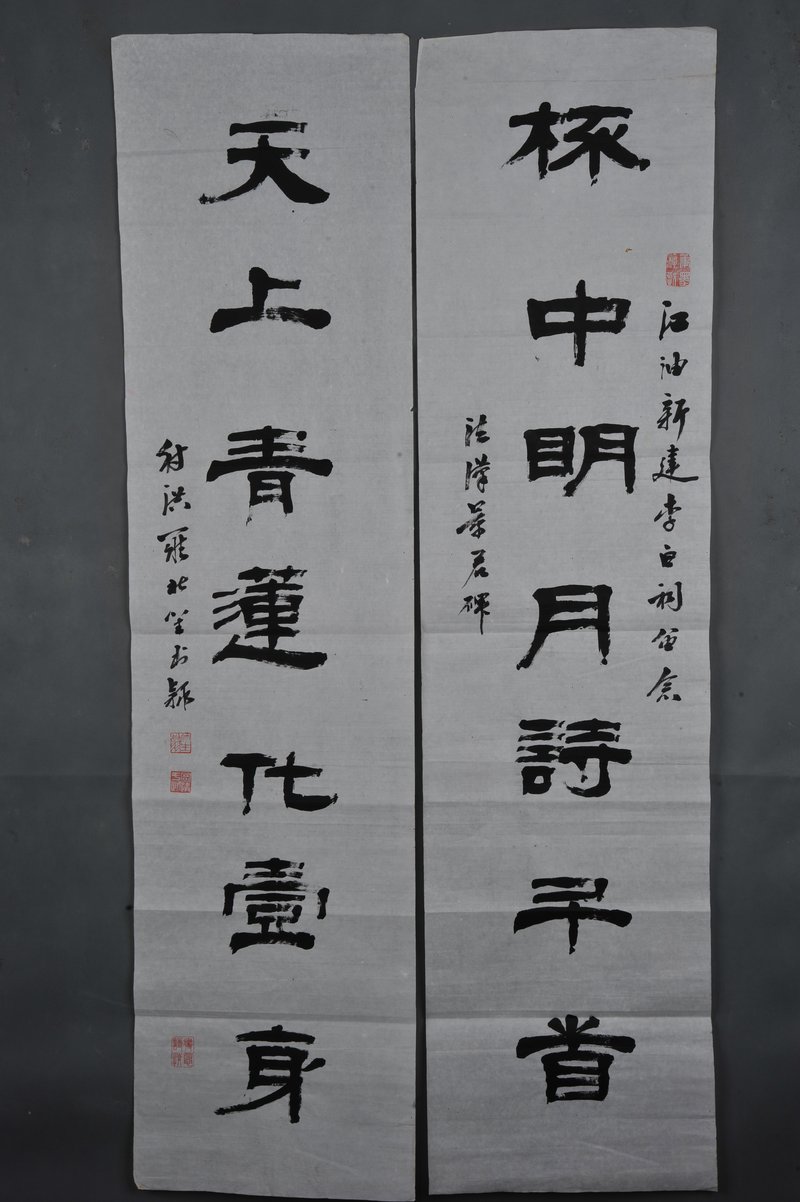 江油新建李白祠留念
杯中明月詩千首
法漢華君碑
天上青蓮化壹身
射洪羅北笙書